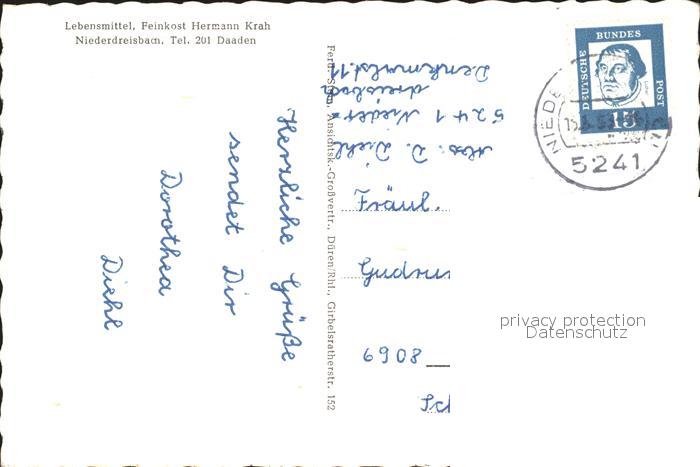 Lebensmittel, Feinkost Hermann Krah
Niederdreisbach, Tel. 201 Daaden
Herzliche Grüße
sendet Dir
Dorothea
Diehl
Ferd. Ansichtsk.-Großvertr., Düren/Rhl., Girbelsratherstr. 152
Abs: D. Diehl
5241 Nieder=
dreisbach
Denkmalst. 11
Fräul.
Gudrun
6908
DEUTSCHE
BUNDES
POST
15
NIEDE
5241
privacy protection
Datenschutz